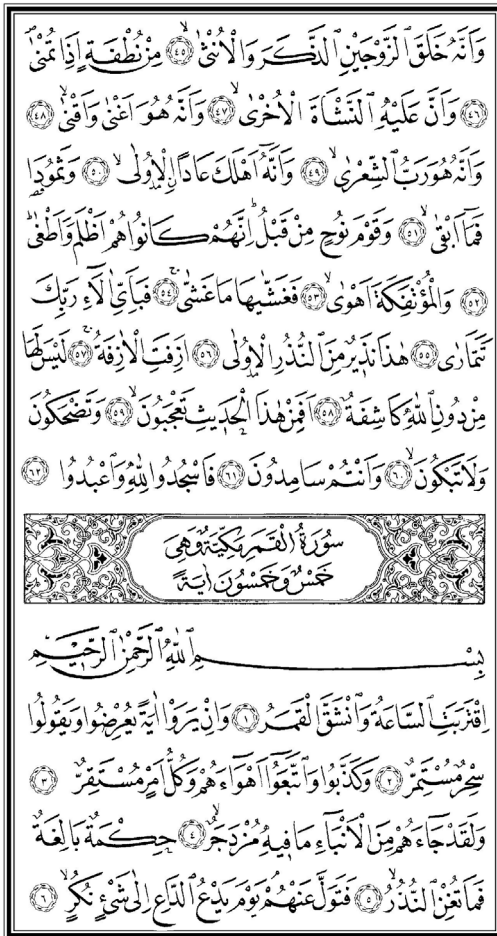 وَاَنَّهُ خَلَقَ الزَّوْجَيْنِ الذَّكَرَ وَالْاُنْثٰىۙ ﴿٤٥﴾ مِنْ نُطْفَةٍ اِذَا تُمْنٰىۖ
﴿٤٦﴾ وَاَنَّ عَلَيْهِ النَّشْاَةَ الْاُخْرٰىۙ ﴿٤٧﴾ وَاَنَّهُ هُوَ اَغْنٰى وَاَقْنٰىۙ ﴿٤٨﴾
وَاَنَّهُ هُوَ رَبُّ الشِّعْرٰىۙ ﴿٤٩﴾ وَاَنَّهُٓ اَهْلَكَ عَادًاۨ الْاُولٰىۙ ﴿٥٠﴾ وَثَمُودَا۬
فَمَٓا اَبْقٰىۙ ﴿٥١﴾ وَقَوْمَ نُوحٍ مِنْ قَبْلُؕ اِنَّهُمْ كَانُوا هُمْ اَظْلَمَ وَاَطْغٰىؕ
﴿٥٢﴾ وَالْمُؤْتَفِكَةَ اَهْوٰىۙ ﴿٥٣﴾ فَغَشّٰيهَا مَا غَشّٰىۚ ﴿٥٤﴾ فَبِاَيِّ اٰلَٓاءِ رَبِّكَ
تَتَمَارٰى ﴿٥٥﴾ هٰذَا نَذٖيرٌ مِنَ النُّذُرِ الْاُولٰى ﴿٥٦﴾ اَزِفَتِ الْاٰزِفَةُۚ ﴿٥٧﴾ لَيْسَ لَهَا
مِنْ دُونِ اللّٰهِ كَاشِفَةٌؕ ﴿٥٨﴾ اَفَمِنْ هٰذَا الْحَدٖيثِ تَعْجَبُونَۙ ﴿٥٩﴾ وَتَضْحَكُونَ
وَلَا تَبْكُونَۙ ﴿٦٠﴾ وَاَنْتُمْ سَامِدُونَ ﴿٦١﴾ فَاسْجُدُوا لِلّٰهِ وَاعْبُدُوا ﴿٦٢﴾
سُورَةُ الْقَمَرِ مَكِّيَّةٌ وَهِيَ
خَمْسٌ وَخَمْسُونَ اٰيَةً
بِسْمِ اللّٰهِ الرَّحْمٰنِ الرَّحٖيمِ
اِقْتَرَبَتِ السَّاعَةُ وَانْشَقَّ الْقَمَرُ ﴿١﴾ وَاِنْ يَرَوْا اٰيَةً يُعْرِضُوا وَيَقُولُوا
سِحْرٌ مُسْتَمِرٌّ ﴿٢﴾ وَكَذَّبُوا وَاتَّبَعُٓوا اَهْوَٓاءَهُمْ وَكُلُّ اَمْرٍ مُسْتَقِرٌّ ﴿٣﴾
وَلَقَدْ جَٓاءَهُمْ مِنَ الْاَنْبَٓاءِ مَا فٖيهِ مُزْدَجَرٌۙ ﴿٤﴾ حِكْمَةٌ بَالِغَةٌ
فَمَا تُغْنِ النُّذُرُۙ ﴿٥﴾ فَتَوَلَّ عَنْهُمْ يَوْمَ يَدْعُ الدَّاعِ اِلٰى شَيْءٍ نُكُرٍۙ ﴿٦﴾